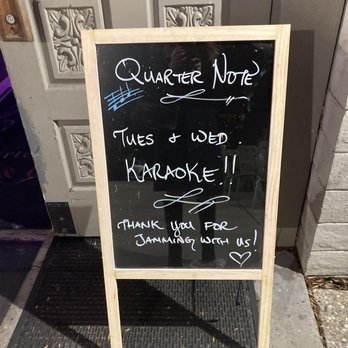 QUARTER NOTE
TUES & WED.
KARAOKE!!
THANK YOU FOR
JAMMING WITH US!